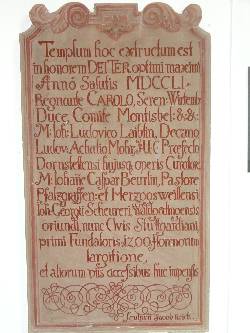 Templum hoc exstructum est
in honorem DEI TER optimi maximi
Anno Salutis MDCCLI.
Regnante CAROLO, Seren: Wirtemb:
Duce, Comite Montisbel: &:&:
M: Joh: Ludovico Laiblin, Decano,
Ludov: Achatio Mohr, Præfecto
Dornstettensi hujusq; operis Curatore,
M. Johane Caspar Beurlin, Pastore
Pfalzgraffen: et Herzogsweilensi
Joh: Georgii Scheureri,
oriundi, nunc Civis Stuttgardiani
primi Fundatoris, 1200 florenorum
largitione,
et aliorum piis accessibus huc impensis
sculpsit Jacob